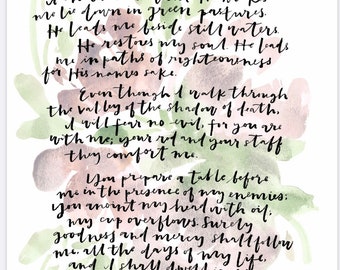 me lie down in green pastures.
He leads me beside still waters.
He restores my soul. He leads
me in paths of righteousness
for His names sake.
Even though I walk through
the valley of the shadow of death,
I will fear no evil, for you are
with me; your rod and your staff
they comfort me.
You prepare a table before
me in the presence of my enemies;
you anoint my head with oil,
my cup overflows. Surely
goodness and mercy shall follow
me all the days of my life,
and I shall dwell in